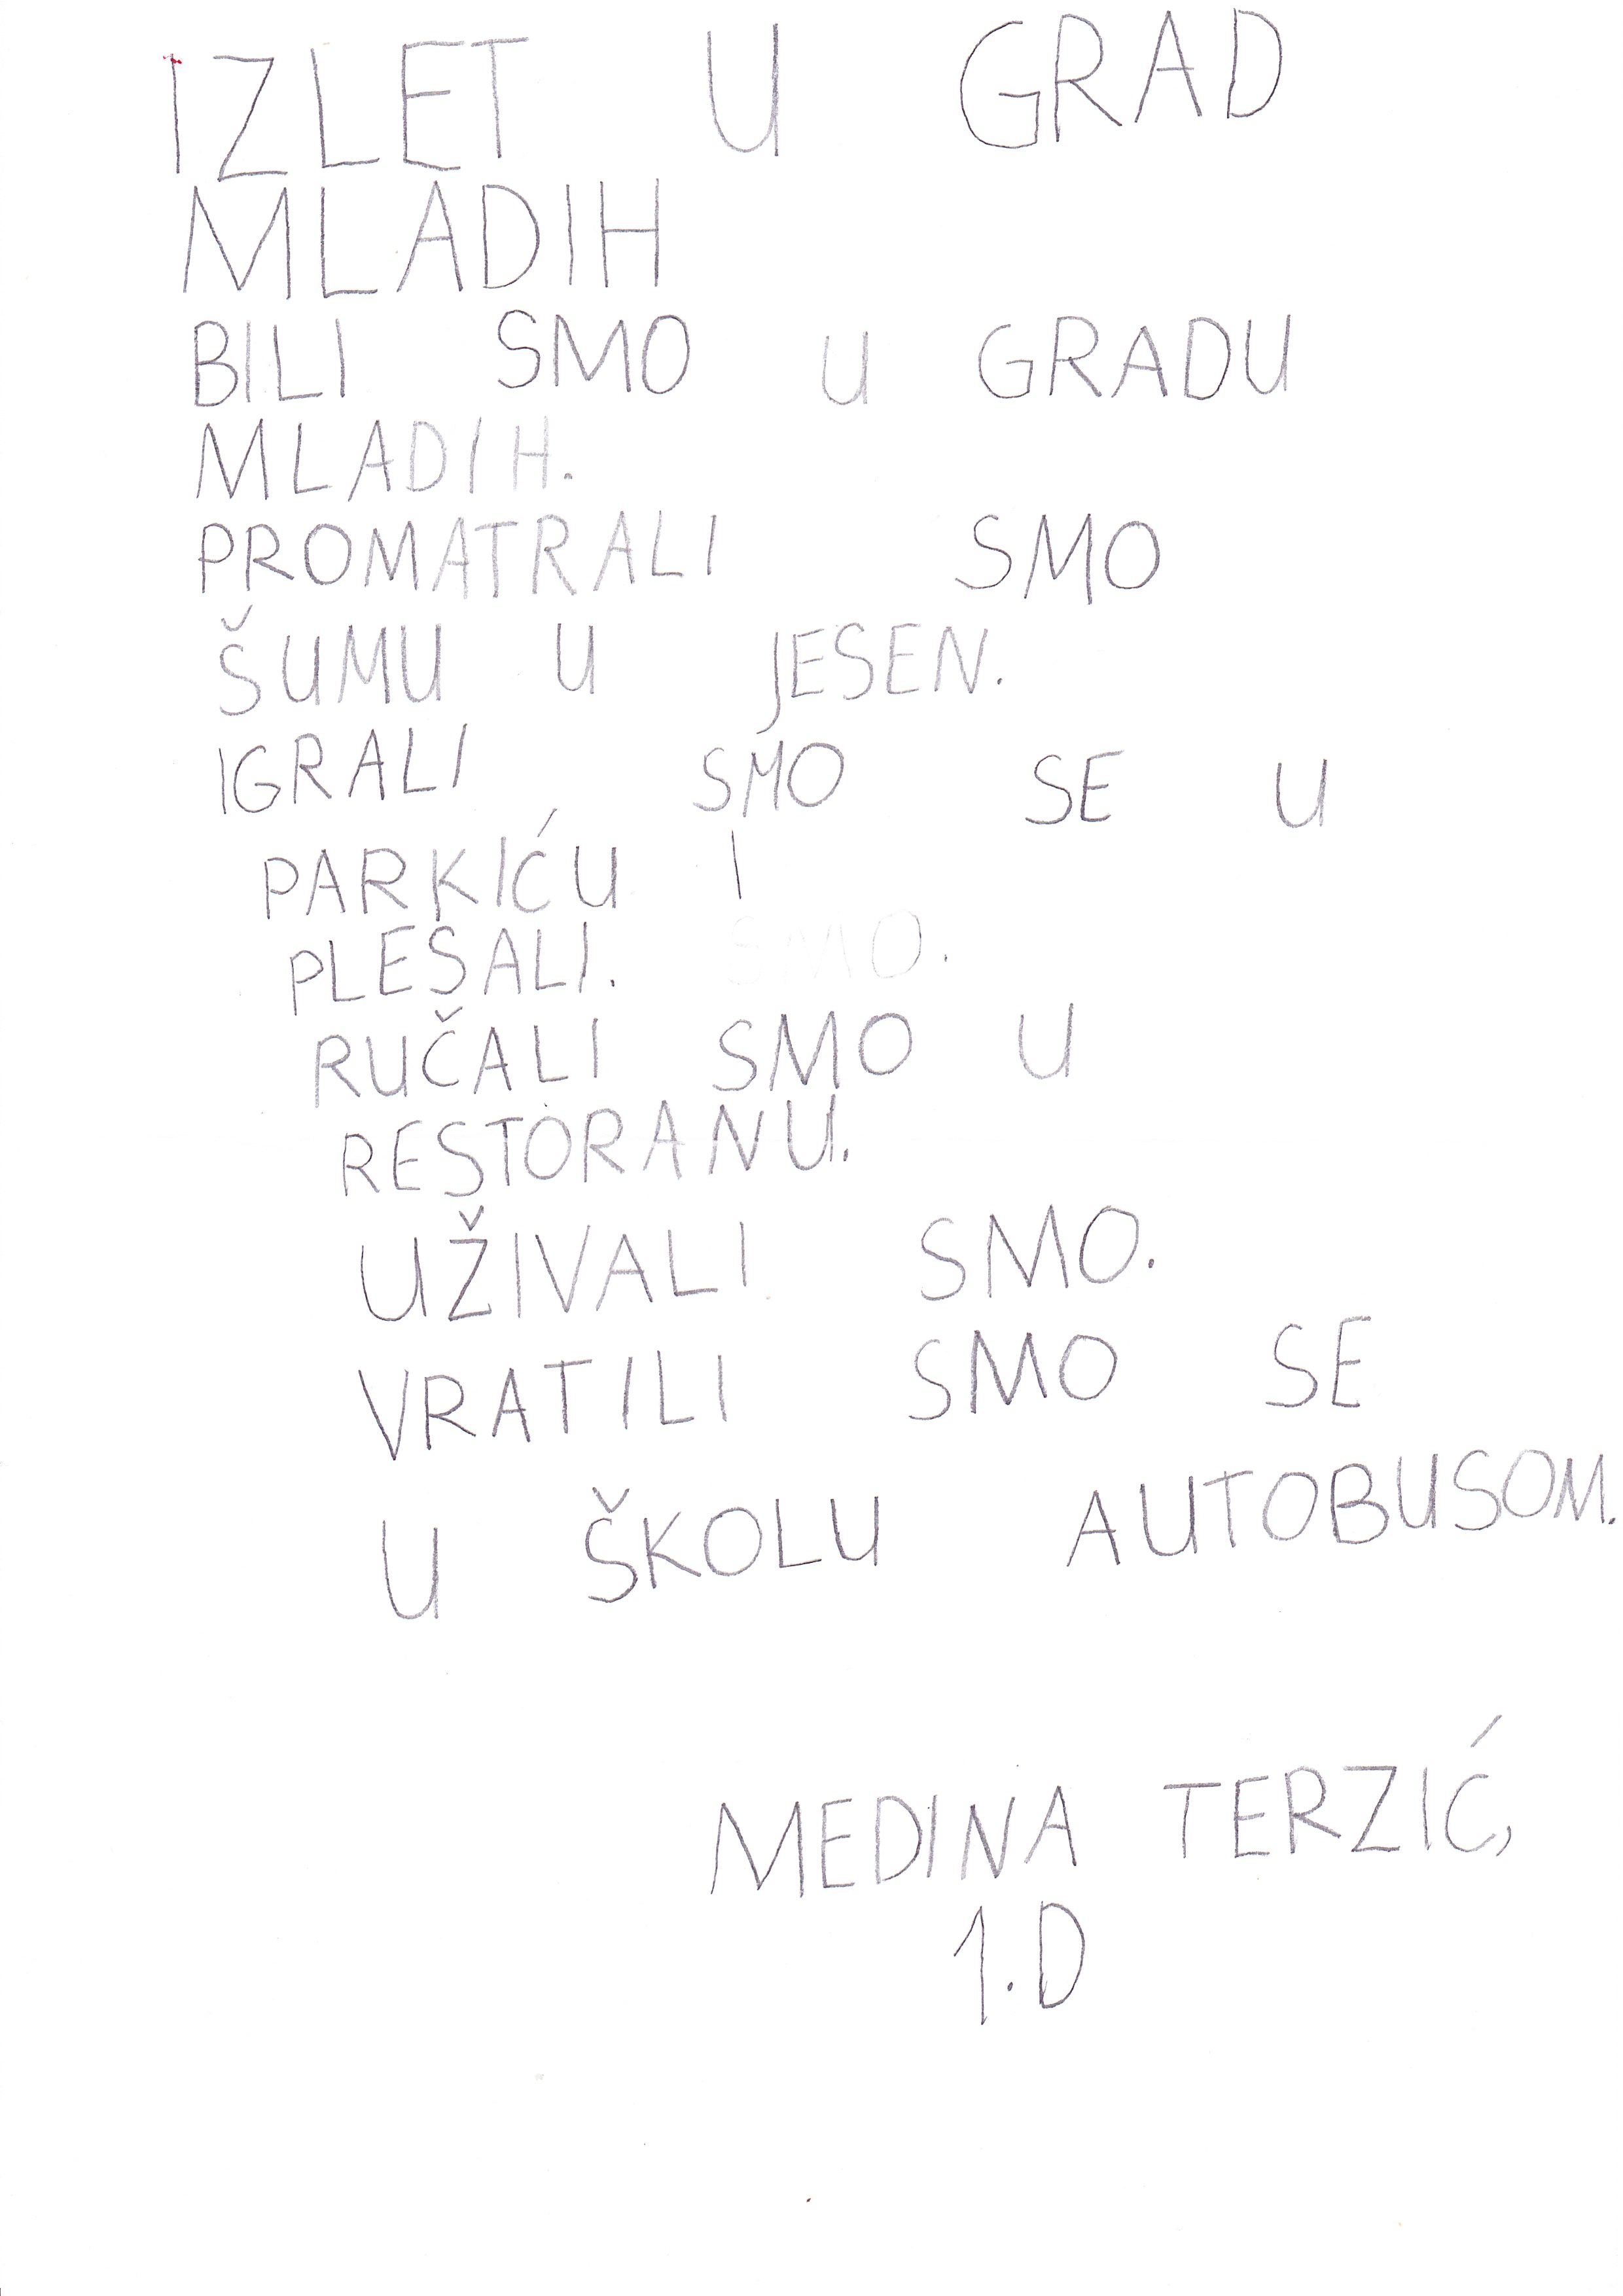 IZLET U GRAD
MLADIH
BILI SMO U GRADU
MLADIH.
PROMATRALI SMO
ŠUMU U JESEN.
IGRALI SMO SE U
PARKIĆU I
PLESALI. SMO.
RUČALI SMO U
RESTORANU.
UŽIVALI SMO.
VRATILI SMO SE
U ŠKOLU AUTOBUSOM.
MEDINA TERZIĆ,
1.D